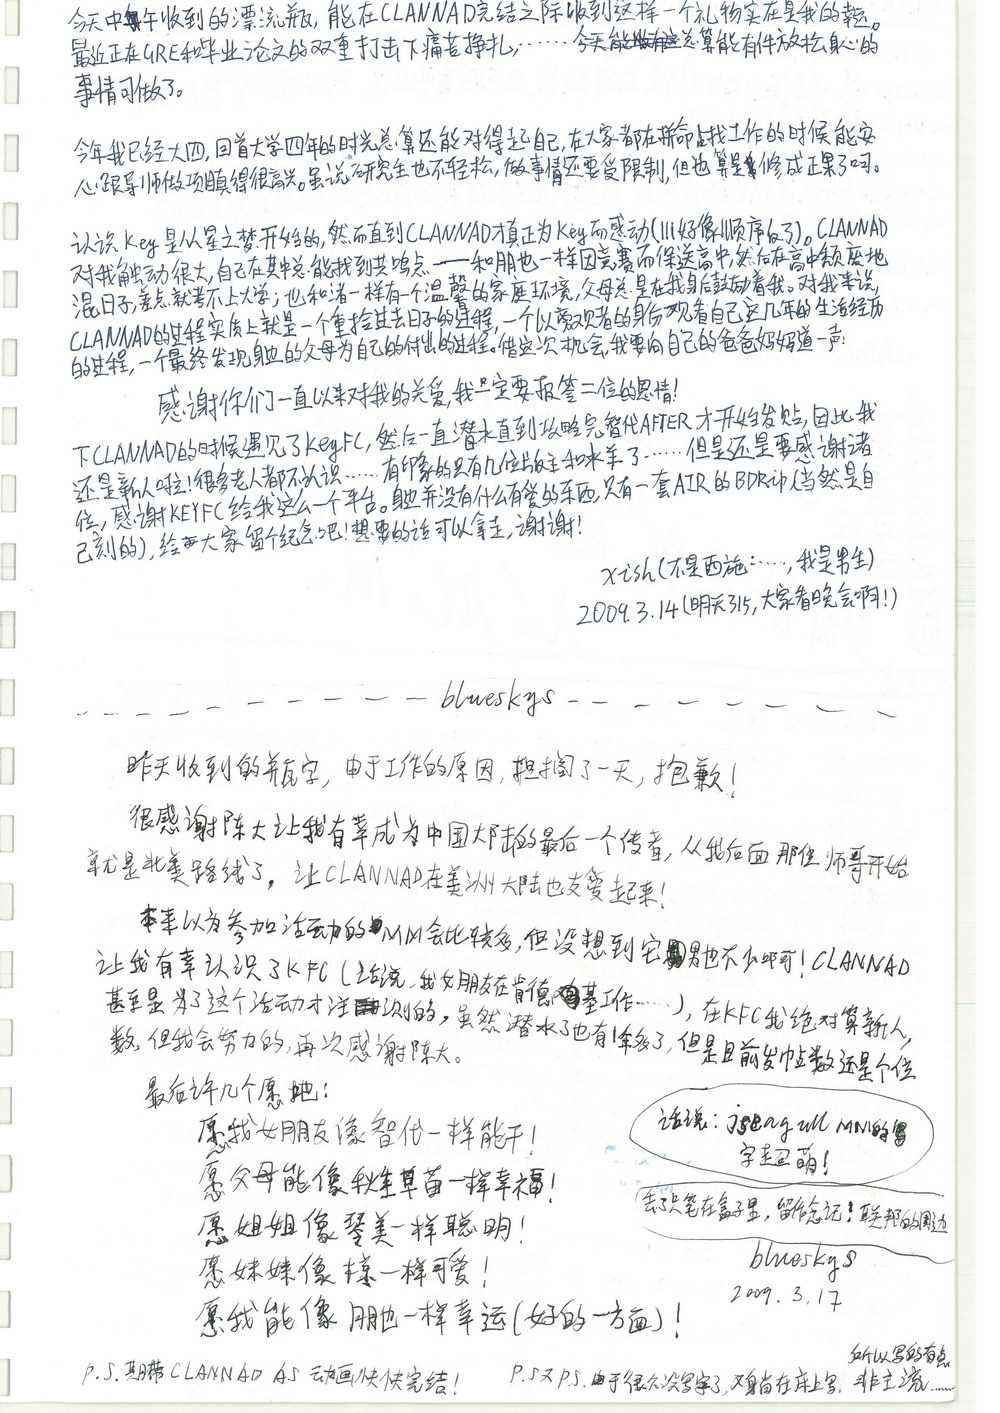 今天中午收到的漂流瓶，能在CLANNAD完结之际收到这样一个礼物实在是我的幸运。
最近正在GRE和毕业论文的双重打击下痛苦挣扎，……今天能总算能有件放松身心的
事情可做了。
今年我已经大四，回首大学四年的时光总算还能对得起自己，在大家都在拼命找工作的时候能安
心跟导师做项目真得很高兴。虽说研究生也不轻松，做事情还要受限制，但也算是修成正果了呵。
认识Key是从星之梦开始的，然而直到CLANNAD才真正为Key而感动(川好像顺序反了)。CLANNAD
对我触动很大，自己在其中总能找到共鸣点——和朋也一样因竞赛而保送高中，然后在高中颓废地
混日子，差点就考不上大学；也和渚一样有一个温馨的家庭环境，父母总是在我身后鼓励着我。对我来说，
CLANNAD的过程实质上就是一个重拾过去日子的过程，一个以旁观者的身份观看自己这几年的生活经历
的过程，一个最终发现身边的父母为自己的付出的过程。借这次机会，我要向自己的爸爸妈妈道一声：
感谢你们一直以来对我的关爱，我一定要报答二位的恩情！
下CLANNAD的时候遇见了KeyFC，然后一直潜水直到攻略完智代AFTER才开始发贴，因此我
还是新人啦！很多老人都不认识……有印象的只有几位版主和水羊了……但是还是要感谢诸
位，感谢KEYFC给我这么一个平台。身边并没有什么有爱的东西，只有一套AIR的BDRip（当然是自
己刻的），给大家留个纪念吧！想要的话可以拿走，谢谢！
xish(不是西施……，我是男生)
2009.3.14(明天315，大家看晚会啊！)
blueskys
昨天收到的瓶子，由于工作的原因，担搁了一天，抱歉！
很感谢陈大让我有幸成为中国大陆的最后一个传者，从我后面那位师哥开始
就是北美路线了，让CLANNAD在美洲大陆也友爱起来！
本来以为参加活动的MM会比较多，但没想到宅男也不少哪可！CLANNAD
让我有幸认识了KFC（话说，我女朋友在肯德基工作……），在KFC我绝对算新人，
甚至是为了这个活动才注册的，虽然潜水了也有1年多了，但是目前发帖数还是个位
数，但我会努力的，再次感谢陈大。
最后许几个愿吧：
愿我女朋友像智代一样能干！
愿父母能像秋生早苗一样幸福！
愿姐姐像琴美一样聪明！
愿妹妹像椋一样可爱！
愿我能像朋也一样幸运(好的一方面)！
话说：jseagull MM的
字超萌！
丢了只笔在盒子里，留作念记！联邦的周边
blueskys
2009.3.17
P.S.期带CLANNAD AS 动画快快完结！
P.S又P.S.由于很久没写字了，又身尚在床上写，
所以写的有点
非主流……